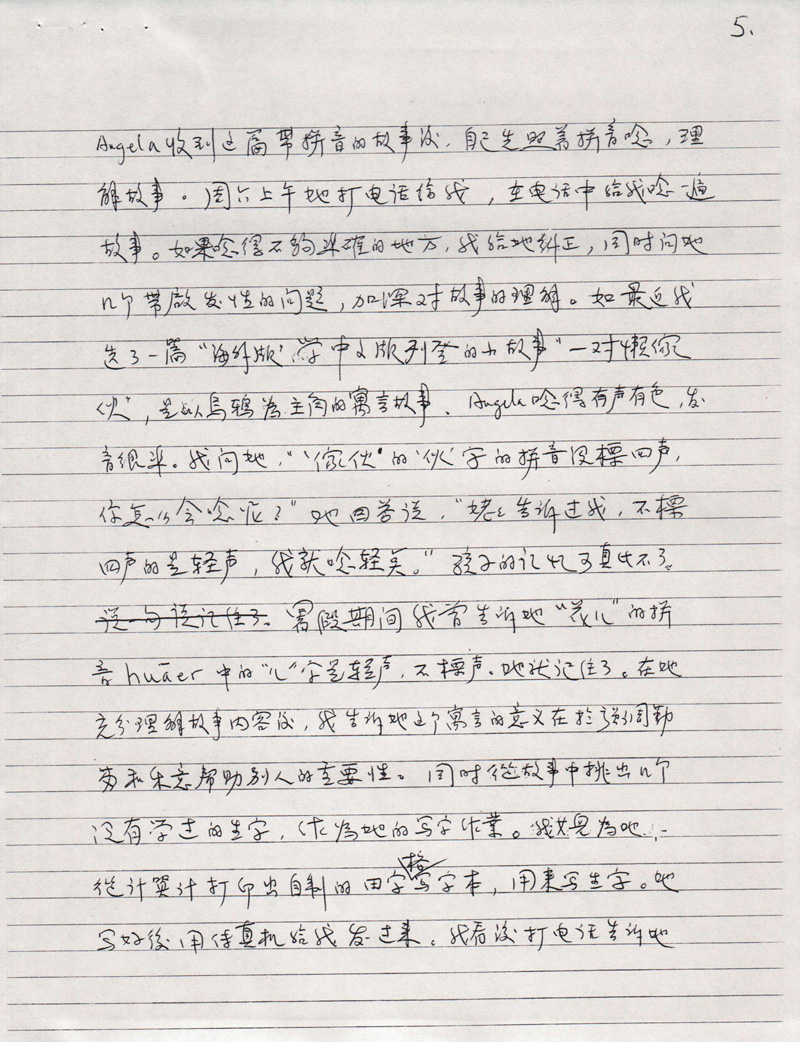 5.
Angela收到这篇带拼音的故事後，自己先照着拼音唸，理
解故事。周六上午她打电话给我，在电话中给我唸一遍
故事。如果唸得不夠準確的地方，我给她纠正，同时问她
几个带啟发性的问题，加深对故事的理解。如最近我
选了一篇“海外版‘学中文版刊登的小故事“一对懒傢
伙”，是以乌鸦为主角的寓言故事。Angela唸得有声有色，发
音很準。我问她，“‘傢伙’的‘伙’字的拼音没標四声，
你怎么会唸呢？”她回答说，“姥姥告诉过我，不標
四声的是轻声，我就唸轻点。”孩子的记忆可真忘不了。
说一句说记住了。暑假期间我曾告诉她“花儿”的拼
音huāer中的“儿”字是轻声，不標声。她就记住了。在她
充分理解故事内容後，我告诉她这个寓言的意义在於強调勤
劳和乐意幫助别人的重要性。同时從故事中挑出几个
没有学过的生字，作為她的写字作業。我还是為她
從计算计打印出自制的田字格写字本，用来写生字。她
写好後用传真机给我发过来。我看後打电话告诉她